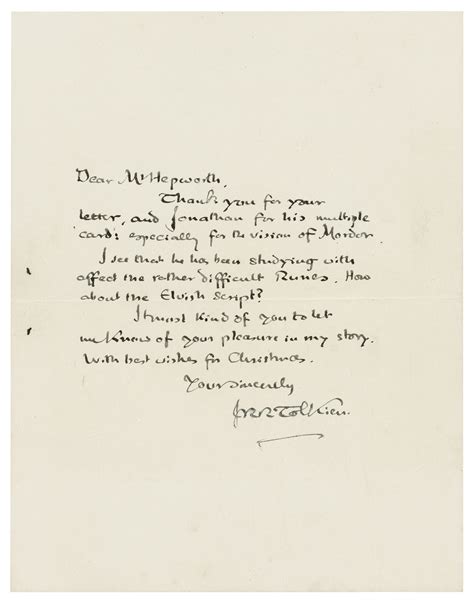 Dear Mr Hepworth,
Thank you for your
letter, and Jonathan for his multiple
card: especially for the vision of Mordor.
I see that he has been studying with
effect the rather difficult Runes. How
about the Elvish Script?
It most kind of you to let
me know of your pleasure in my story.
With best wishes for Christmas.
Yours sincerely
JRRTolkien.